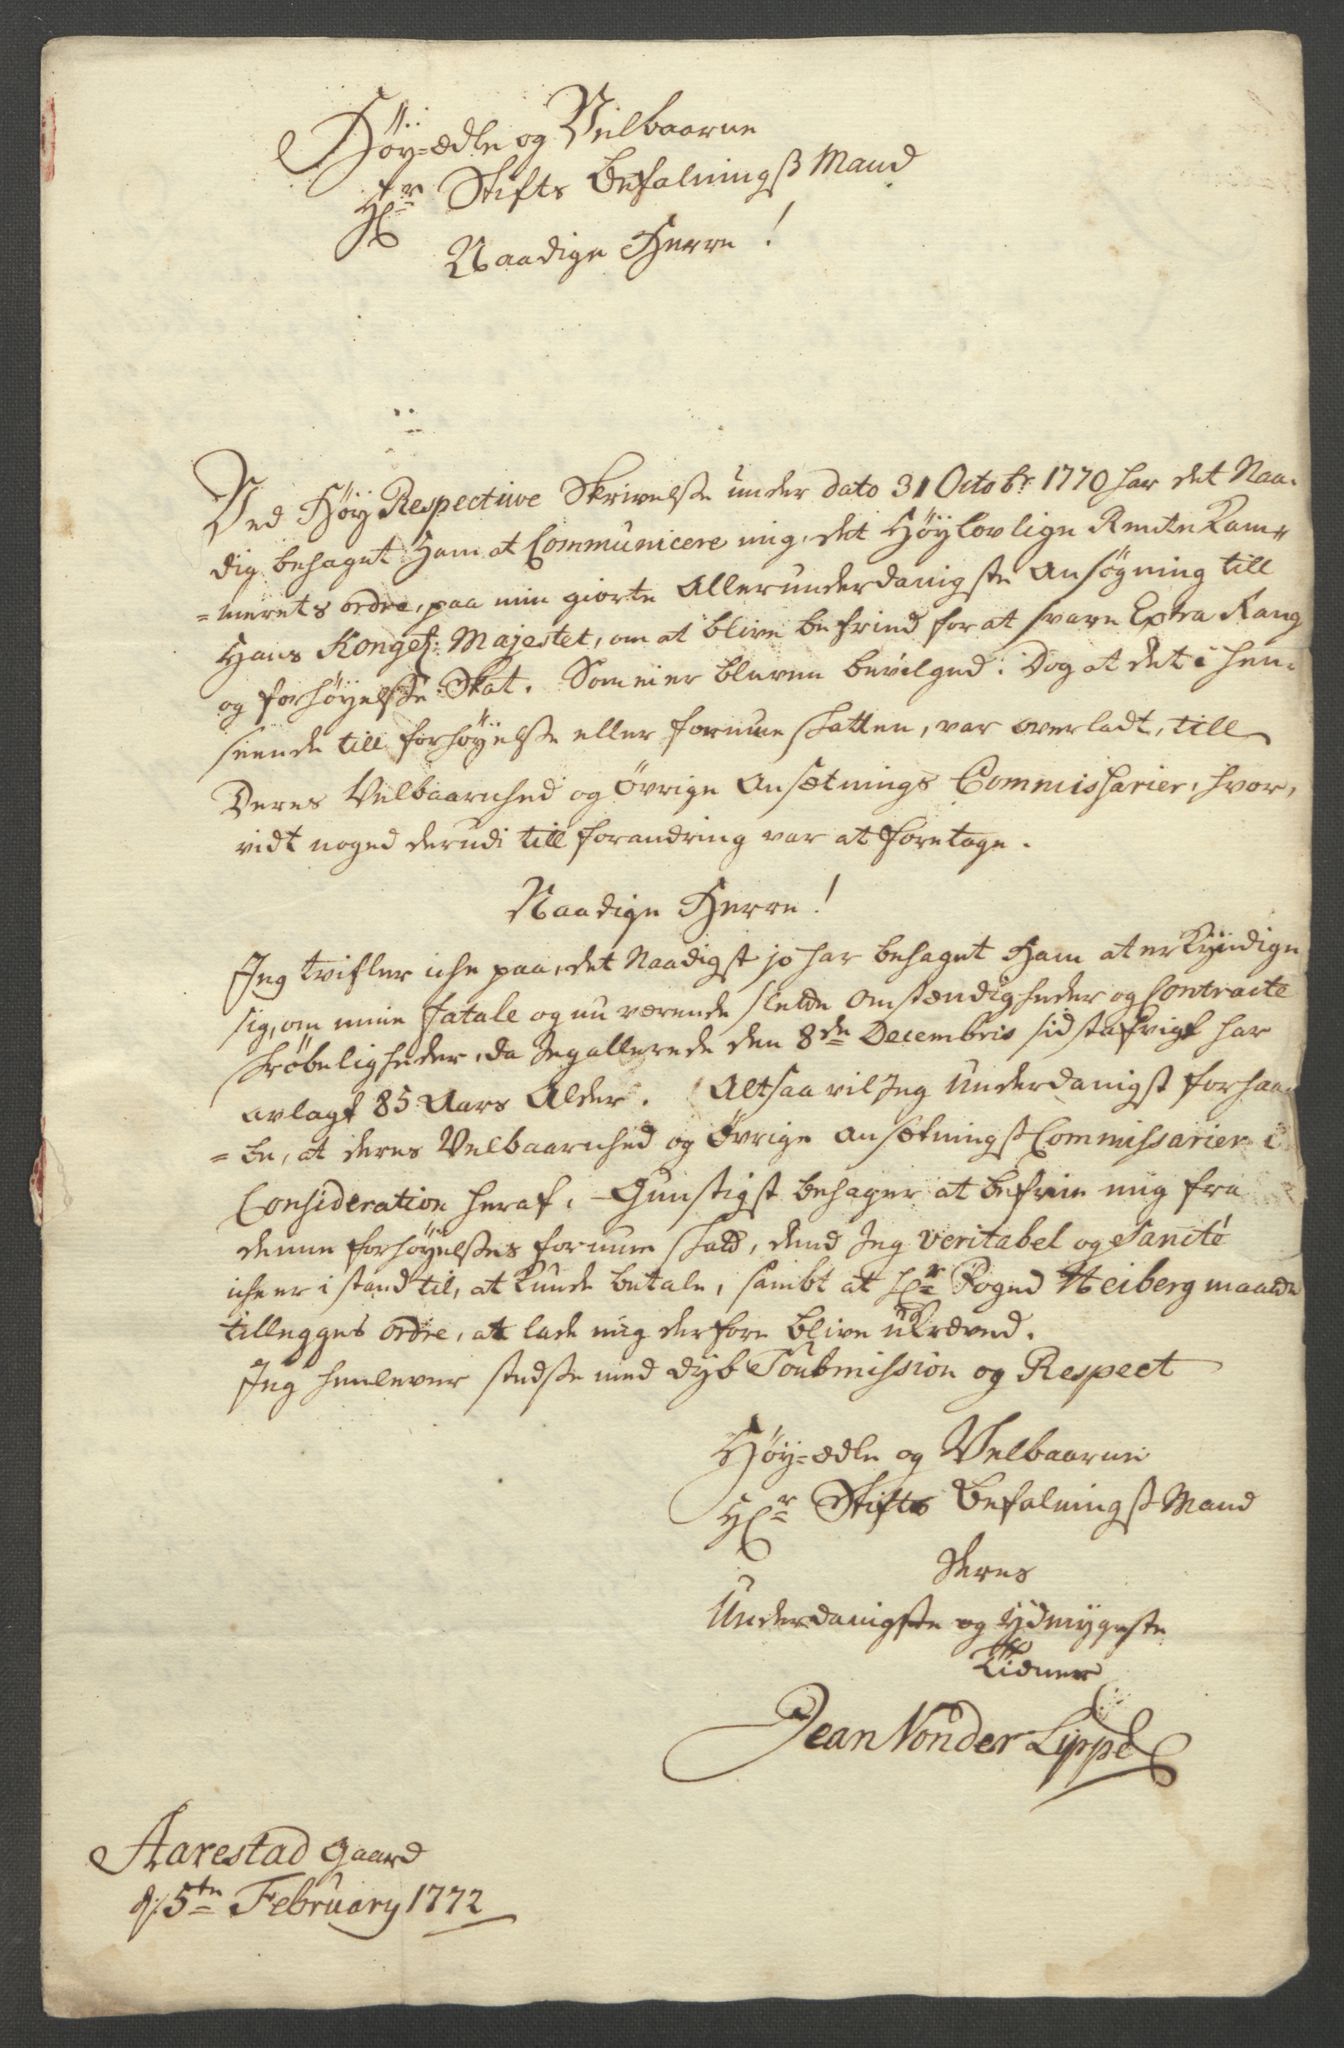 Høy-ædle og Velbaarne
Hr Stifts Befalningsß Mand
Naadige Herre!
Ved Høy Respective Skrivelße under dato 31 Octobr 1770 har det Naa-
dig behaget Ham at Communicere mig, det Høylovlige Rente Kam-
=merets ordre, paa min giorte Allerunderdanigste Ansøgning till
Hans Kongel: Majestet, om at blive befried for at svare Extra Rang
og forhøyelße Skat. Som ei er bleven bevilged: Dog at det i hen-
seende till forhøyelße eller formue skatten, var overladt, till
Deres Velbaarnhed og Øvrige Ansætnings Commissarier, hvor-
vidt noged derudi till forandring var at foretage.
Naadige Herre!
Jeg tvifler iche paa, det Naadigst jo har behaget Ham at erkyndige
sig, om mine fatale og nu værende slette omstændigheder og Contracte
skrøbeligheder, da Jeg allerede den 8de Decembris sidstafvigt har
avlagt 85 Aars Alder. Altsaa vil Jeg Underdanigst forhaa-
=be, at deres Velbaarnhed og Øvrige Ansætningsß Commissarier i
Consideration heraf, Gunstigst behager at befrie mig fra
denne forhøyelßes formue skatt, dend Jeg veritabel og Sanité
iche er i stand til, at kunde betale, sambt at Hr Foged Heiberg maatte
tillegges ordre, at lade mig derfore blive ukræved.
Jeg henlever stedße med dyb Soubmission og Respect
Høy-ædle og Velbaarne
Hr Stifts Befalningsß Mand
Deres
Underdanigste og ydmygeste
Tiener
Jean Vonder Lippe
Aarestad gaard
d: 5te February 1772